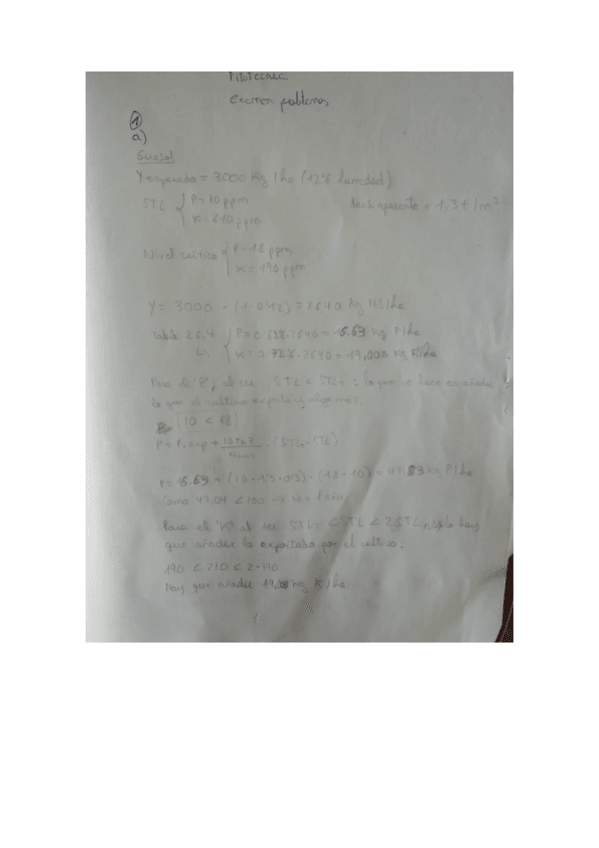 Fitotecnia
examen problemas
①
a)
Girasol
Yesperado = 3000 Kg/ha (12% humedad)
STL { P=10 ppm
K=210 ppm
dens aparente = 1,3 t/m³
Nivel crítico { P=18 ppm
K=190 ppm
Y= 3000 · (1-0'12) = 2640 Kg MS/ha
Tabla 26.4
P= 2640 = 16.63 Kg P/ha
K= 2640 = 19,008 Kg K/ha
Para el 'P', al ser STL < STLt : lo que se hace es añadir
lo que el cultivo exporta y algo más.
10 < 18
P= Pexp + (STLt - STL)
(18-10) = 47.83 Kg P/ha
Como < 100 → n = 1 año
Para el 'K' al ser STLt < STL < 2STLt sólo hay
que añadir lo exportado por el cultivo.
190 < 210 < 2·190
Hay que añadir K/ha
1